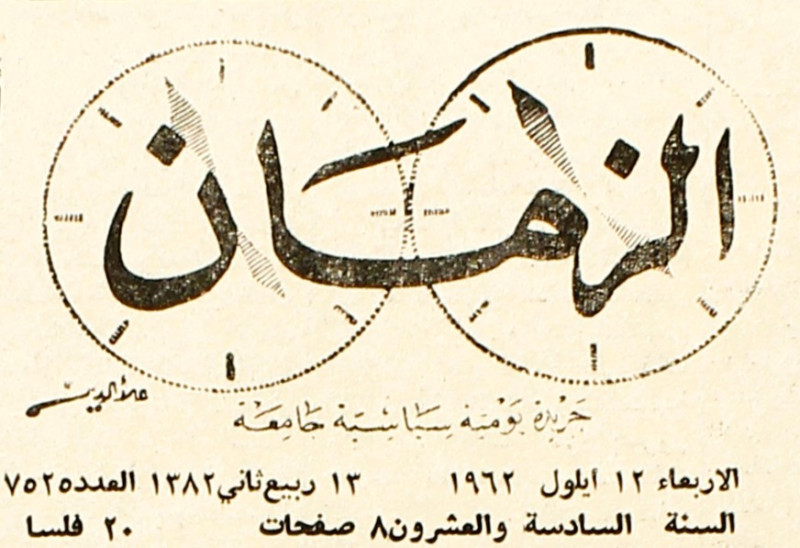 الزمان
علاء الدين
جَريدة يَوميّة سِيَاسِيّة جَامِعَة
الاربعاء ١٢ أيلول ١٩٦٢ ١٣ ربيع ثاني ١٣٨٢ العدد ٧٥٢٥
السنة السادسة والعشرون ٨ صفحات ٢٠ فلسا